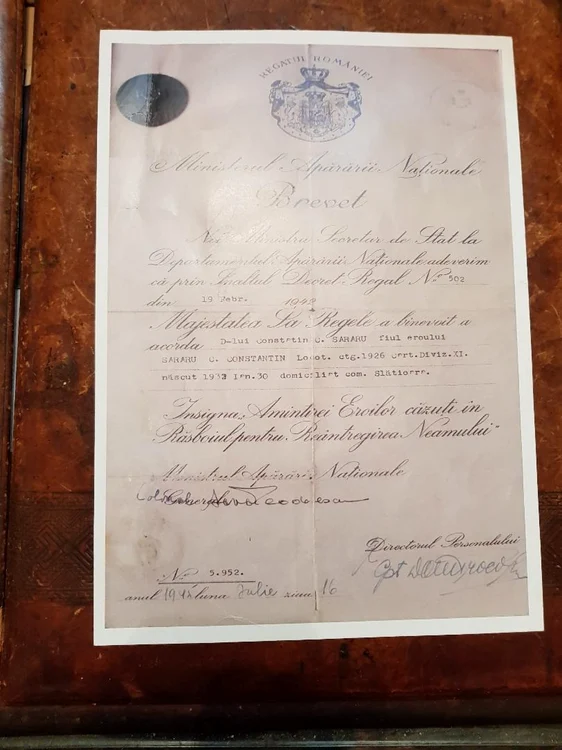 REGATUL ROMÂNIEI
Ministerul Apărării Naționale
Brevet
Noi Ministru Secretar de Stat la
Departamentul Apărării Naționale adeverim
că prin Înaltul Decret Regal No 502
din 19 Febr. 1942
Majestatea Sa Regele a binevoit a
acorda D-lui Constatin C. SARARU fiul eroului
SARARU C. CONSTANTIN Locot. ctg.1926 Cart.Diviz.XI.
născut 1932 Ian.30 domiciliat com. Slătioara.
Insigna „Amintirei Eroilor căzuți în
Răsboiul pentru Reîntregirea Neamului"
Ministrul Apărării Naționale
Directorul Personalului
No 5.952.
anul luna Iulie ziua 16